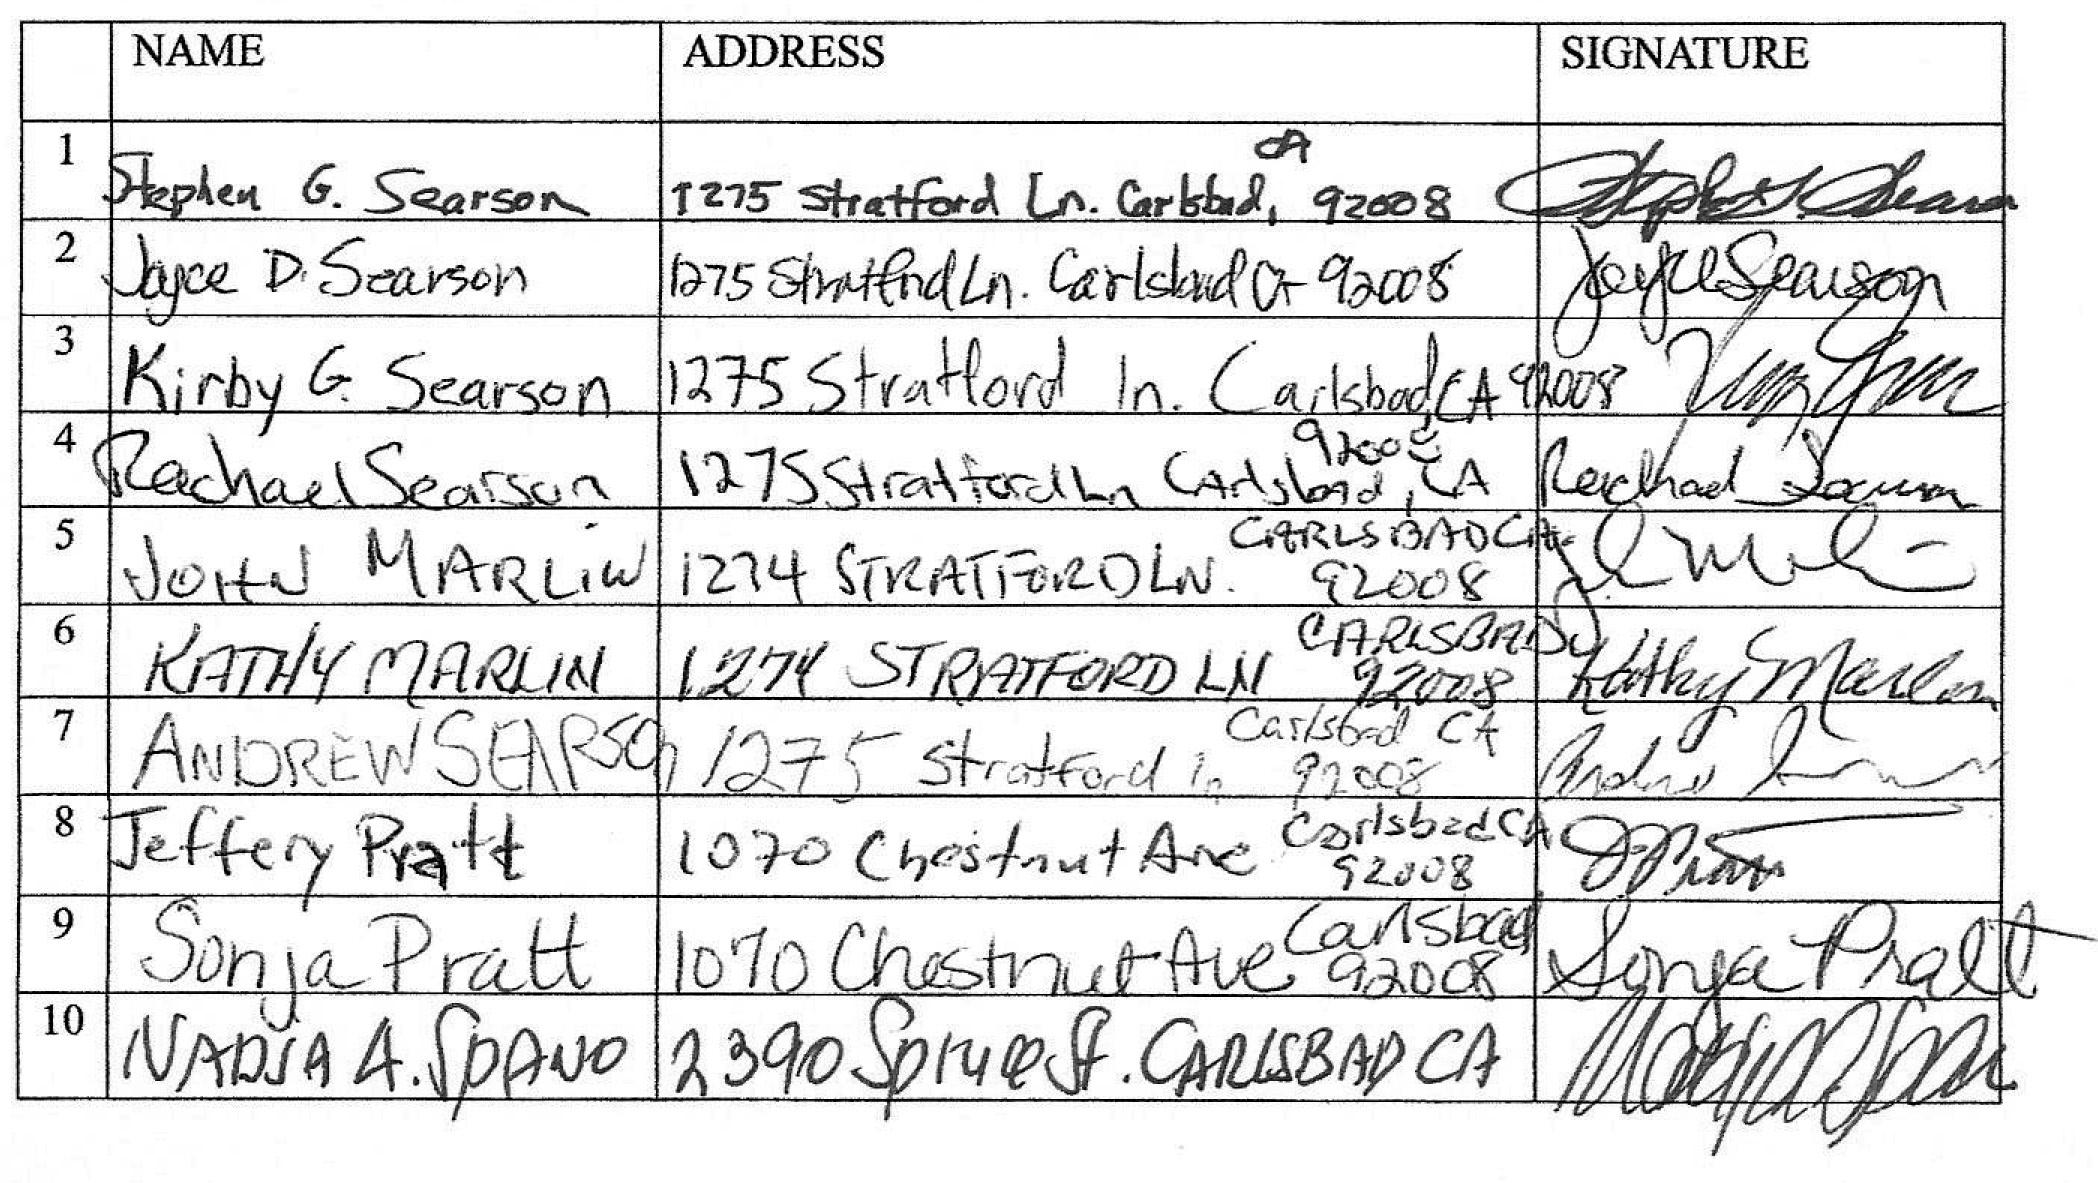 NAME ADDRESS SIGNATURE
1 Stephen G. Searson 1275 Stratford Ln. Carlsbad, CA 92008 Stephen G. Searson
2 Joyce D. Searson 1275 Stratford Ln. Carlsbad CA 92008 Joyce Searson
3 Kirby G. Searson 1275 Stratford ln. Carlsbad, CA 92008
4 Rachael Searson 1275 Stratford Ln Carlsbad, CA 92008 Rachael Searson
5 JOHN MARLIN 1274 STRATFORD LN. CARLSBAD CA 92008
6 KATHY MARLIN 1274 STRATFORD LN CARLSBAD 92008 Kathy Marlin
7 ANDREW SEARSOn 1275 Stratford ln Carlsbad CA 92008 Andrew
8 Jeffery Pratt 1070 Chestnut Ave Carlsbad CA 92008 J Pratt
9 Sonja Pratt 1070 Chestnut Ave Carlsbad 92008 Sonja Pratt
10 NADJA A. SPANO 2390 Spruce St. CARLSBAD CA